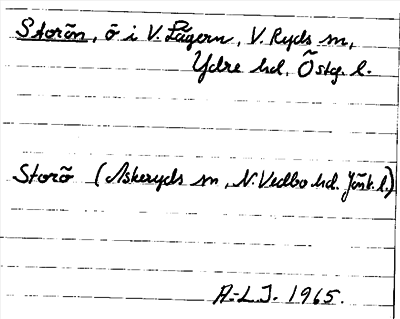 Storön, ö i V. Lägern, V. Ryds sn,
Ydre hd, Östg. l.
Storö (Askeryds sn, N. Vedbo hd. Jönk. l.)
A-L J. 1965.